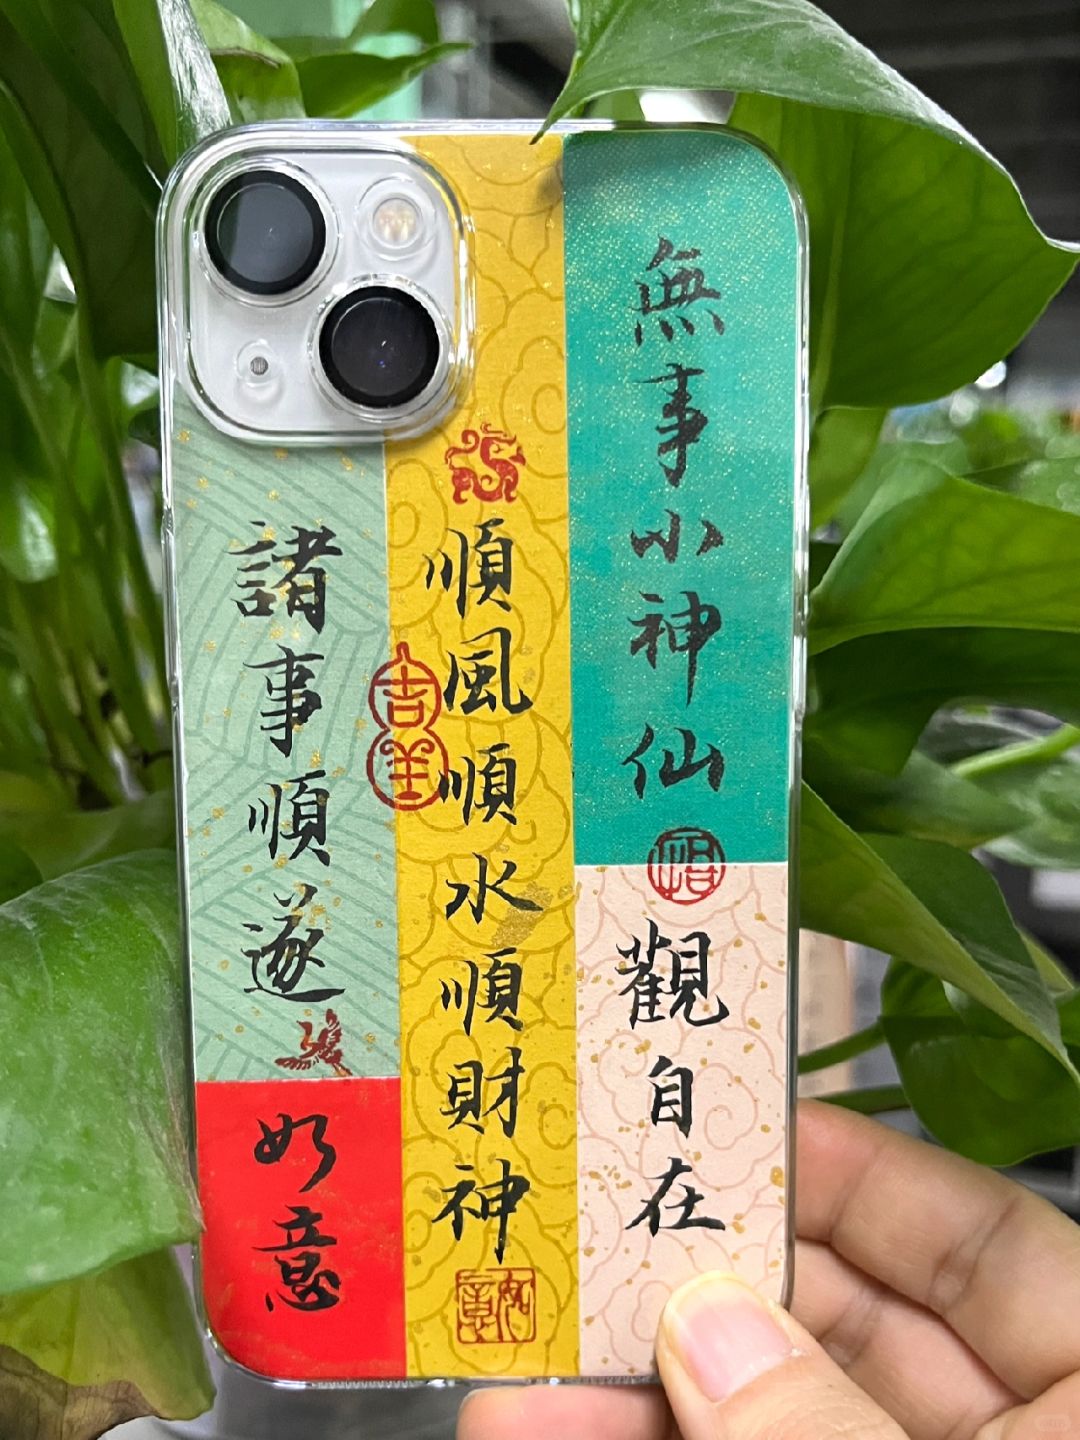 無事小神仙
悟
觀自在
順風順水順財神
如意
吉祥
諸事順遂
如意